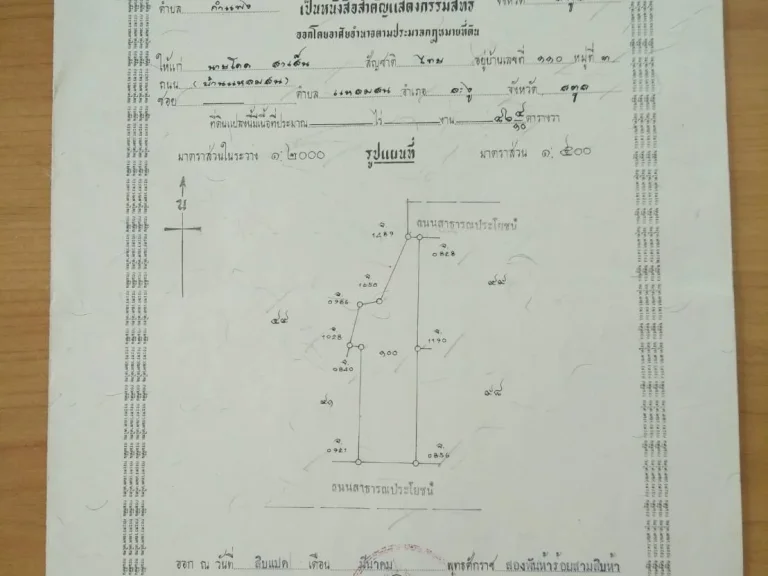 ตำบล กำแพง จังหวัด สตูล
เป็นหนังสือสำคัญแสดงกรรมสิทธิ์
ออกโดยอาศัยอำนาจตามประมวลกฎหมายที่ดิน
ให้แก่ สัญชาติ ไทย อยู่บ้านเลขที่ ๑๑๐ หมู่ที่ ๓
ถนน (บ้านแหลมสน) ตำบล แหลมสน อำเภอ ละงู จังหวัด สตูล
ซอย
ที่ดินแปลงนี้มีเนื้อที่ประมาณ ไร่ งาน ตารางวา
มาตราส่วนในระวาง ๑:๒๐๐๐ รูปแผนที่ มาตราส่วน ๑:๕๐๐
น
ถนนสาธารณประโยชน์
จ. 1489
จ. 0828
จ. 0986
จ. 1028
จ. 1190
จ. 0840
๑๐๐
จ. 0921
จ. 0856
ถนนสาธารณประโยชน์
ออก ณ วันที่ สิบแปด เดือน มีนาคม พุทธศักราช สองพันห้าร้อยสามสิบห้า